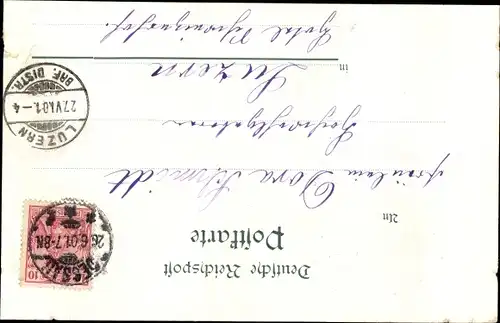 Deutsche Reichspost
Postkarte
An
Fräulein Dora Schmidt
Hochwohlgeboren
in Luzern
Hotel Schweizerhof.
DESSAU
26.6.01.7-8N.
10
LUZERN
27.VI.01.-4
BRF. DISTR.